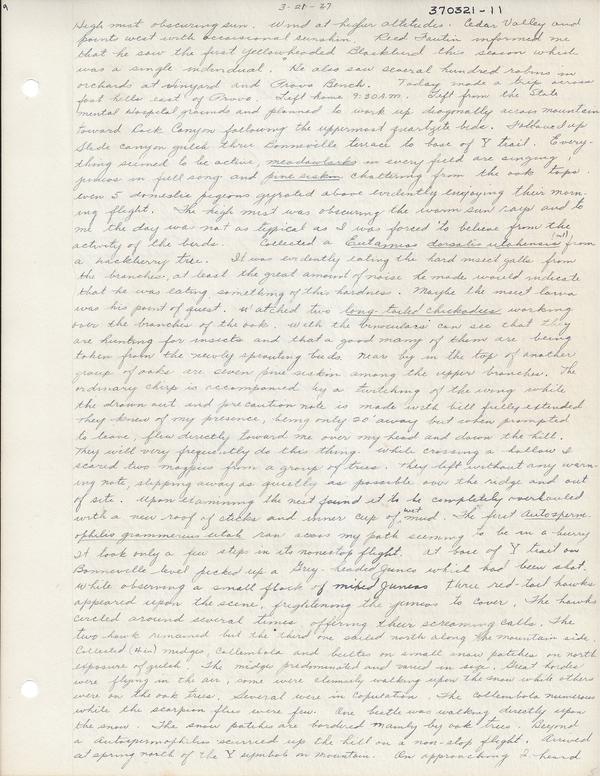 3-21-37
370321-11
High mist obscuring sun. Wind at higher altitudes. Cedar Valley and
points west with occasional sunshin. Reed Fautin informed me
that he saw the first Yellowheaded Blackbird this season which
was a single individual. He also saw several hundred robins in
orchards at Vinyard and Provo Bench. Today made a trip across
foot hills east of Provo. Left home 9:30 A.M. Left from the State
mental Hospital grounds and planned to work up diagonally across mountain
toward Rock Canyon following the uppermost quartzite beds. Followed up
Slide canyon gulch thru Bonneville terrace to base of Y trail. Every-
thing seemed to be active, meadowlarks in every field are singing,
juncos in full song and pine siskin chattering from the oak tops.
even 5 domestic pigeons gyrated above evidently enjoying their morn-
ing flight. The high mist was obscuring the warm sun rays and to
me the day was not as typical as I was forced to believe from the
activity of the birds. Collected a Eutamias dorsatis utahensis from
a hackberry tree. It was evidently eating the hard insect galls from
the branches, at least the great amount of noise he made would indicate
that he was eating something of this hardness. Maybe the insect larva
was his point of quest. Watched two long-tailed chickadees working
over the branches of the oak. With the binoculars can see that they
are hunting for insects and that a good many of them are being
taken from the newly sprouting buds. Near by in the top of another
group of oaks are seven pine siskin among the upper branches. The
ordinary chirp is accompanied by a twitching of the wing while
the drawn out and precaution note is made with bill fully extended
They knew of my presence, being only 20' away but when prompted
to leave, flew directly toward me over my head and down the hill.
They will very frequently do this thing. While crossing a hollow I
scared two magpies from a group of trees. They left without any warn-
ing note, slipping away as quietly as possible over the ridge and out
of site. Upon examining the nest found it to be completely overhauled
with a new roof of sticks and inner cup of wet mud. The first Autosperm-
ophilis grammurus utah ran across my path seeming to be in a hurry
It took only a few steps in its nonestop flight. At base of Y trail on
Bonneville level picked up a Grey-headed Junco which had been shot.
While observing a small flock of mixed Juncos three red-tail hawks
appeared upon the scene, frightening the juncos to cover. The hawks
circled around several times offering their screaming calls. The
two hawk remained but the third one sailed north along the mountain side.
Collected midges, collembola and beetles on small snow patches on north
exposure of gulch. The midges predominated and varied in size. Great hordes
were flying in the air, some were clumsily walking upon the snow while others
were on the oak trees. Several were in copulation. The collembola numerous
while the scorpion flies were few. One beetle was walking directly upon
the snow. The snow patches are bordered mainly by oak trees. Beyond
a Autospermophilus scurried up the hill on a non-stop flight. Arrived
at spring north of the Y symbol on mountain. On approaching I heard